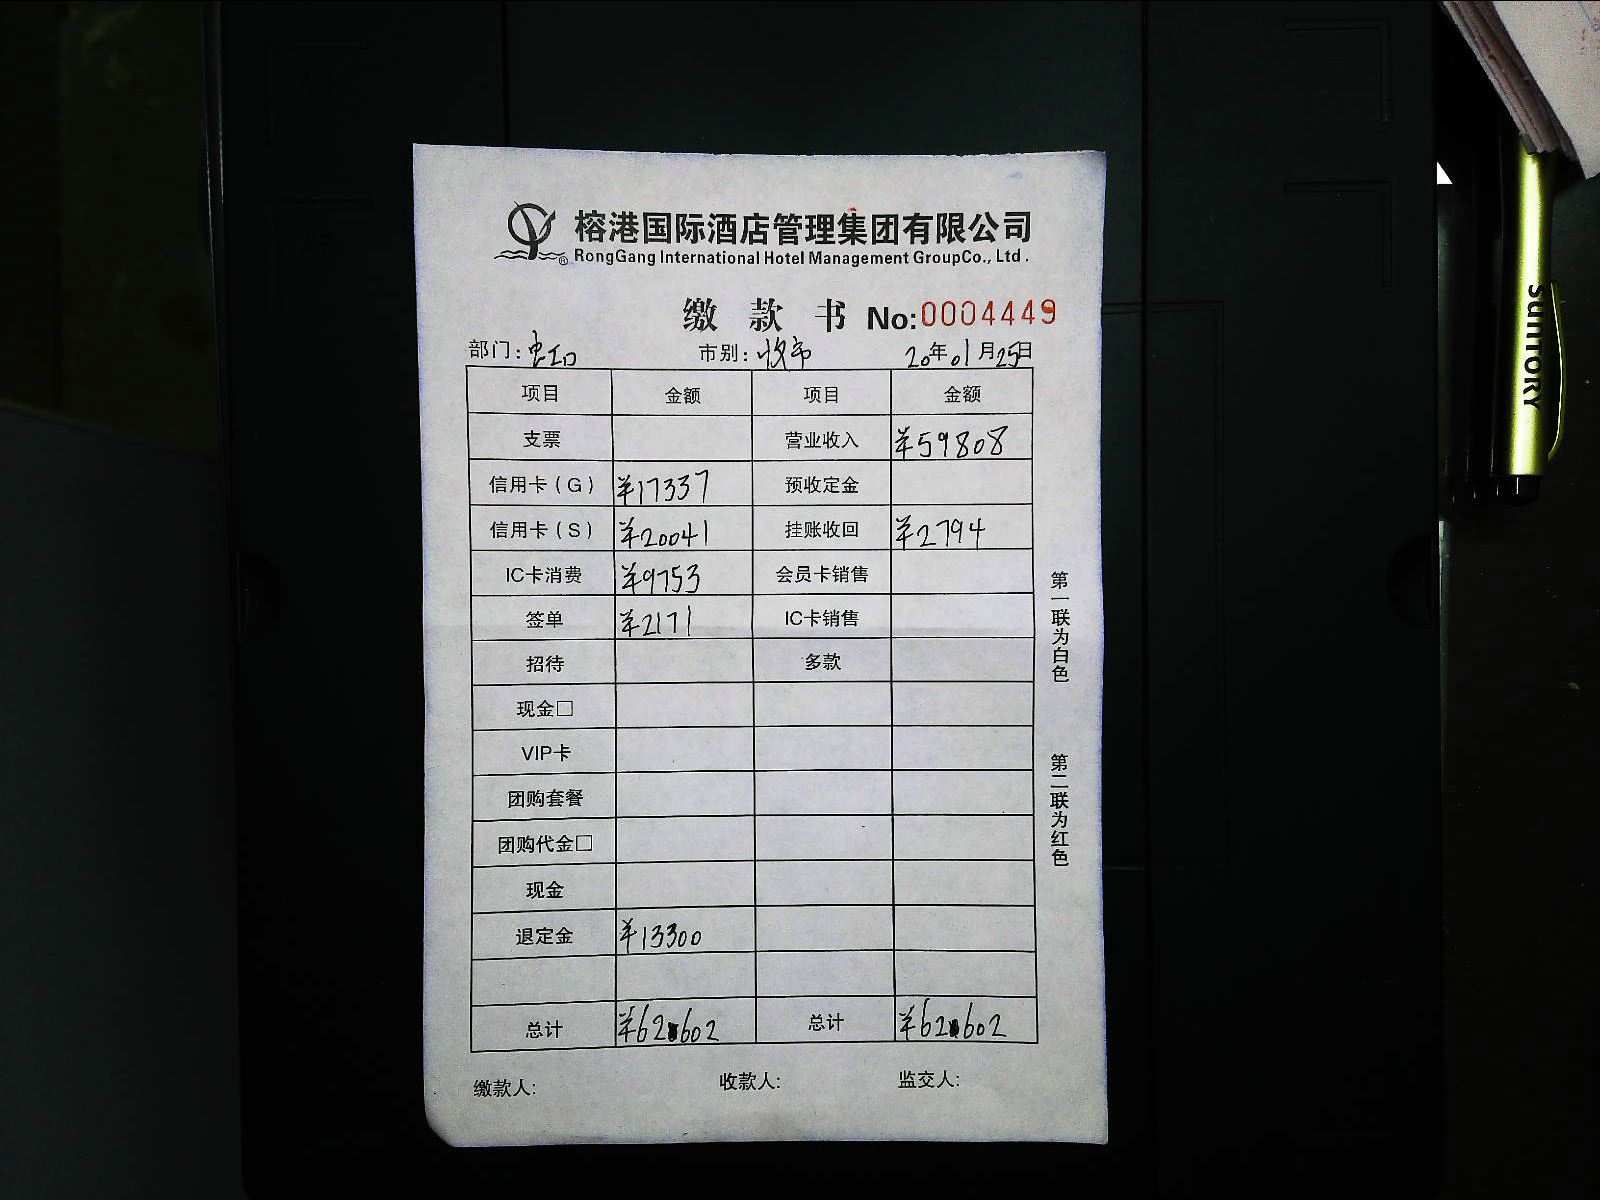 榕港国际酒店管理集团有限公司
® RongGang International Hotel Management GroupCo., Ltd.
缴款书 No:0004449
部门:虹口 市别:收市 20年01月25日
项目 金额 项目 金额
支票 营业收入 ¥59808
信用卡(G) ¥17337 预收定金
信用卡(S) ¥20041 挂账收回 ¥2794
IC卡消费 ¥9753 会员卡销售
签单 ¥2171 IC卡销售
招待 多款
现金□
VIP卡
团购套餐
团购代金□
现金
退定金 ¥13300
总计 ¥62602 总计 ¥62602
缴款人: 收款人: 监交人:
第一联为白色
第二联为红色
SUNTORY